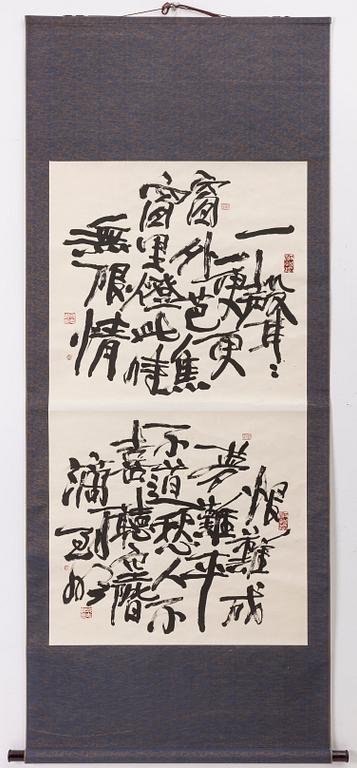 一聲〻
一更更
窗外芭蕉
窗里燈此時
無限情
恨難成
夢難平
不道愁人不
喜聽空階
滴到明